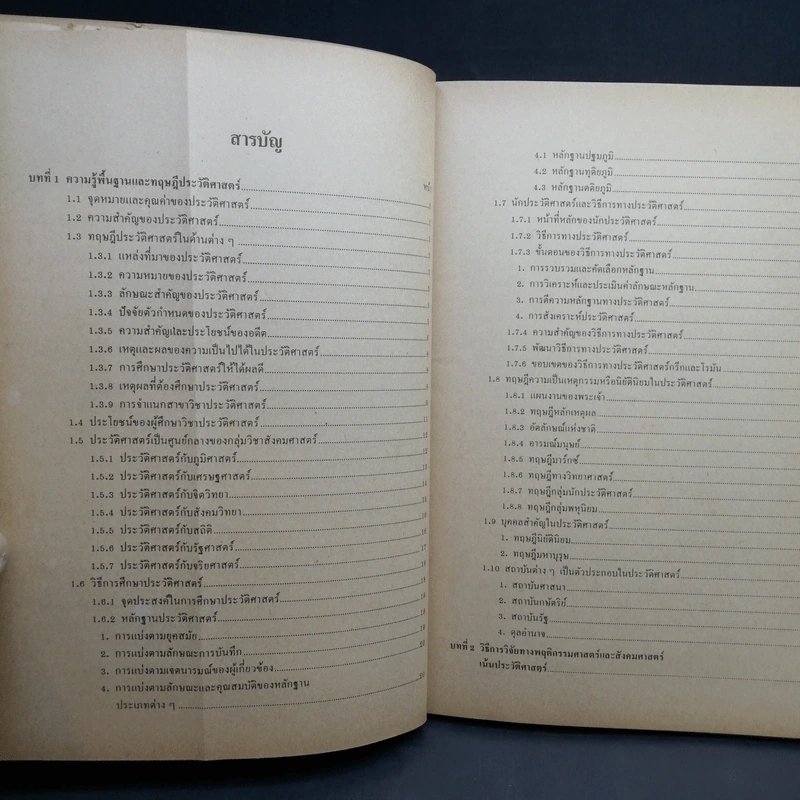 สารบัญ
หน้า
บทที่ 1 ความรู้พื้นฐานและทฤษฎีประวัติศาสตร์
1.1 จุดหมายและคุณค่าของประวัติศาสตร์
1.2 ความสำคัญของประวัติศาสตร์
1.3 ทฤษฎีประวัติศาสตร์ในด้านต่าง ๆ
1.3.1 แหล่งที่มาของประวัติศาสตร์
1.3.2 ความหมายของประวัติศาสตร์
1.3.3 ลักษณะสำคัญของประวัติศาสตร์
1.3.4 ปัจจัยตัวกำหนดของประวัติศาสตร์
1.3.5 ความสำคัญและประโยชน์ของอดีต
1.3.6 เหตุและผลของความเป็นไปได้ในประวัติศาสตร์
1.3.7 การศึกษาประวัติศาสตร์ให้ได้ผลดี
1.3.8 เหตุผลที่ต้องศึกษาประวัติศาสตร์
1.3.9 การจำแนกสาขาวิชาประวัติศาสตร์
1.4 ประโยชน์ของผู้ศึกษาวิชาประวัติศาสตร์
1.5 ประวัติศาสตร์เป็นศูนย์กลางของกลุ่มวิชาสังคมศาสตร์
1.5.1 ประวัติศาสตร์กับภูมิศาสตร์
1.5.2 ประวัติศาสตร์กับเศรษฐศาสตร์
1.5.3 ประวัติศาสตร์กับจิตวิทยา
1.5.4 ประวัติศาสตร์กับสังคมวิทยา
1.5.5 ประวัติศาสตร์กับสถิติ
1.5.6 ประวัติศาสตร์กับรัฐศาสตร์
1.5.7 ประวัติศาสตร์กับจริยศาสตร์
1.6 วิธีการศึกษาประวัติศาสตร์
1.6.1 จุดประสงค์ในการศึกษาประวัติศาสตร์
1.6.2 หลักฐานประวัติศาสตร์
1. การแบ่งตามยุคสมัย
2. การแบ่งตามลักษณะการบันทึก
3. การแบ่งตามเจตนารมณ์ของผู้เกี่ยวข้อง
4. การแบ่งตามลักษณะและคุณสมบัติของหลักฐาน
ประเภทต่าง ๆ
4.1 หลักฐานปฐมภูมิ
4.2 หลักฐานทุติยภูมิ
4.3 หลักฐานตติยภูมิ
1.7 นักประวัติศาสตร์และวิธีการทางประวัติศาสตร์
1.7.1 หน้าที่หลักของนักประวัติศาสตร์
1.7.2 วิธีการทางประวัติศาสตร์
1.7.3 ขั้นตอนของวิธีการทางประวัติศาสตร์
1. การรวบรวมและคัดเลือกหลักฐาน
2. การวิเคราะห์และประเมินค่าลักษณะหลักฐาน
3. การตีความหลักฐานทางประวัติศาสตร์
4. การสังเคราะห์ประวัติศาสตร์
1.7.4 ความสำคัญของวิธีการทางประวัติศาสตร์
1.7.5 พัฒนาวิธีการทางประวัติศาสตร์
1.7.6 ขอบเขตของวิธีการทางประวัติศาสตร์กรีกและโรมัน
1.8 ทฤษฎีความเป็นเหตุกรรมหรือนิยัตินิยมในประวัติศาสตร์
1.8.1 แผนงานของพระเจ้า
1.8.2 ทฤษฎีหลักเหตุผล
1.8.3 อัตลักษณ์แห่งชาติ
1.8.4 อารมณ์มนุษย์
1.8.5 ทฤษฎีมาร์กซ์
1.8.6 ทฤษฎีทางวิทยาศาสตร์
1.8.7 ทฤษฎีกลุ่มนักประวัติศาสตร์
1.8.8 ทฤษฎีกลุ่มพหุนิยม
1.9 บุคคลสำคัญในประวัติศาสตร์
1. ทฤษฎีนิยัตินิยม
2. ทฤษฎีมหาบุรุษ
1.10 สถาบันต่าง ๆ เป็นตัวประกอบในประวัติศาสตร์
1. สถาบันศาสนา
2. สถาบันกษัตริย์
3. สถาบันรัฐ
4. ดุลอำนาจ
บทที่ 2 วิธีการวิจัยทางพฤติกรรมศาสตร์และสังคมศาสตร์
เน้นประวัติศาสตร์